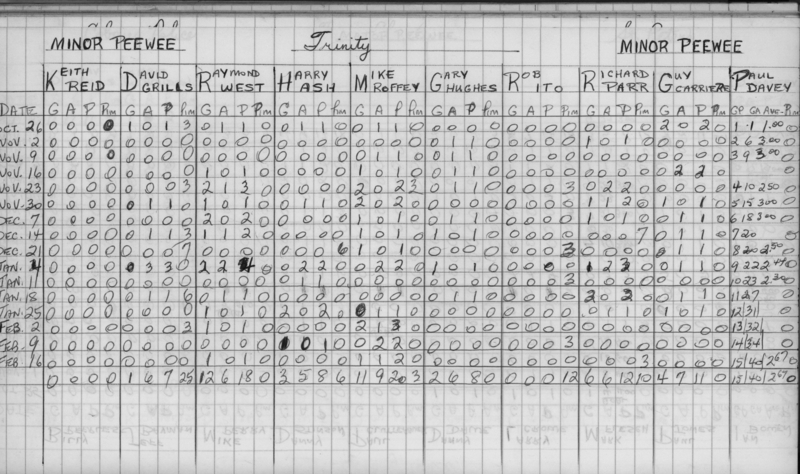 MINOR PEEWEE Trinity MINOR PEEWEE
KEITH REID DAVID GRILLS RAYMOND WEST HARRY ASH MIKE ROFFEY GARY HUGHES ROB ITO RICHARD PARR GUY CARRIERE PAUL DAVEY
DATE G A P Pim G A P Pim G A P Pim G A P Pim G A P Pim G A P Pim G A P Pim G A P Pim G A P Pim GP GA Ave. Pim
OCT. 26 0 0 0 0 1 0 1 3 0 1 1 0 0 1 1 0 0 1 1 0 0 0 0 0 0 0 0 0 0 0 0 0 2 0 2 0 1 1 1.00 0
NOV. 2 0 0 0 0 0 0 0 0 0 0 0 0 0 0 0 0 0 0 0 0 0 1 1 0 0 0 0 0 1 0 1 0 0 0 0 0 2 6 3.00 0
NOV. 9 0 0 0 0 0 0 0 0 0 0 0 0 0 0 0 0 0 1 1 0 0 1 1 0 0 0 0 0 0 0 0 0 0 0 0 0 3 9 3.00 0
NOV. 16 0 0 0 0 0 0 0 0 1 0 1 0 0 0 0 0 1 0 1 0 0 1 1 0 0 0 0 0 0 0 0 0 0 2 2 0 0
NOV. 23 0 0 0 0 0 0 0 3 2 1 3 0 0 0 0 0 2 0 2 3 0 1 1 0 0 0 0 3 0 2 2 0 0 0 0 0 4 10 2.50 0
NOV. 30 0 0 0 0 0 1 1 0 1 0 1 0 0 1 1 0 2 0 2 0 0 0 0 0 0 0 0 0 1 1 2 0 1 0 1 0 5 15 3.00 0
DEC. 7 0 0 0 0 0 0 0 0 2 0 2 0 0 0 0 0 1 0 1 0 0 1 1 0 0 0 0 0 1 0 1 0 0 1 1 0 6 18 3.00 0
DEC. 14 0 0 0 0 0 1 1 3 1 1 2 0 0 0 0 0 1 0 1 0 1 0 1 0 0 0 0 0 0 0 0 7 0 1 1 0 7 20 0
DEC. 21 0 0 0 0 0 0 0 7 0 0 0 0 0 0 0 6 1 0 1 0 0 0 0 0 0 0 0 3 0 0 0 0 0 1 1 0 8 20 2.50 0
JAN. 4 0 0 0 0 0 3 3 0 2 2 4 0 0 2 2 0 0 2 2 0 1 0 1 0 0 0 0 0 1 2 3 0 0 1 1 0 9 22 2.44 0
JAN. 11 0 0 0 0 0 0 0 0 0 0 0 0 0 1 1 0 0 0 0 0 0 0 0 0 0 0 0 3 0 0 0 0 0 0 0 0 10 23 2.30 0
JAN. 18 0 0 0 0 0 1 1 6 0 1 1 0 0 0 0 0 0 0 0 0 0 1 1 0 0 0 0 0 2 0 2 0 0 1 1 0 11 27 0
JAN. 25 0 0 0 0 0 0 0 0 1 0 1 0 2 0 2 0 0 1 1 0 0 0 0 0 0 0 0 0 0 1 1 0 1 0 1 0 12 31 0
FEB. 2 0 0 0 0 0 0 0 3 1 0 1 0 0 0 0 0 2 1 3 0 0 0 0 0 0 0 0 0 0 0 0 0 0 0 0 0 13 32 0
FEB. 9 0 0 0 0 0 0 0 0 0 0 0 0 1 0 1 0 0 2 2 0 0 0 0 0 0 0 0 3 0 0 0 0 0 0 0 0 14 34 0
FEB 16 0 0 0 0 0 0 0 0 1 0 1 0 0 0 0 0 1 1 2 0 0 0 0 0 0 0 0 0 0 0 0 3 0 0 0 0 15 40 2.67 0
0 0 0 0 1 6 7 25 12 6 18 0 3 5 8 6 11 9 20 3 2 6 8 0 0 0 0 12 6 6 12 10 4 7 11 0 15 40 2.67 0